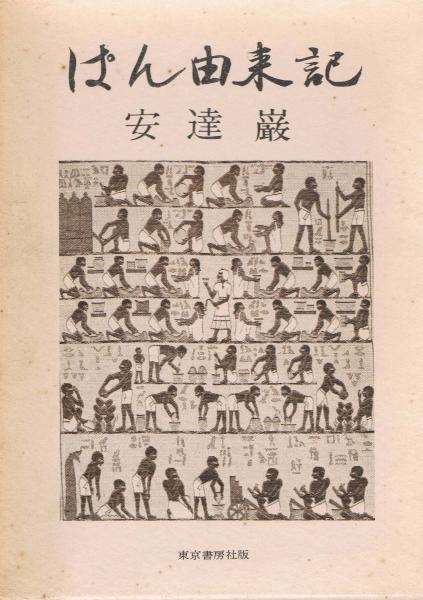 ぱん由来記
安達巖
東京書房社版